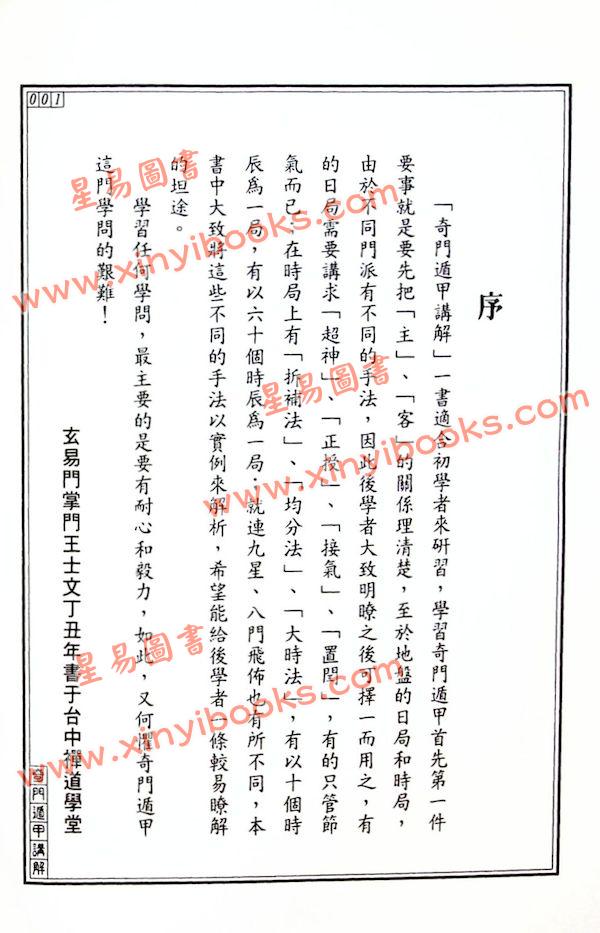 001
序
「奇門遁甲講解」一書適合初學者來研習，學習奇門遁甲首先第一件
要事就是要先把「主」、「客」的關係理清楚，至於地盤的日局和時局，
由於不同門派有不同的手法，因此後學者大致明瞭之後可擇一而用之，有
的日局需要講求「超神」、「正授」、「接氣」、「置閏」，有的只管節
氣而已；在時局上有「拆補法」、「均分法」、「大時法」，有以十個時
辰爲一局，有以六十個時辰爲一局；就連九星、八門飛佈也有所不同，本
書中大致將這些不同的手法以實例來解析，希望能給後學者一條較易瞭解
的坦途。
學習任何學問，最主要的是要有耐心和毅力，如此，又何懼奇門遁甲
這門學問的艱難！
玄易門掌門王士文丁丑年書于台中禪道學堂
奇門遁甲講解
星易圖書
www.xinyibooks.com
星易圖書
www.xinyibooks.com
星易圖書
www.xinyibooks.com